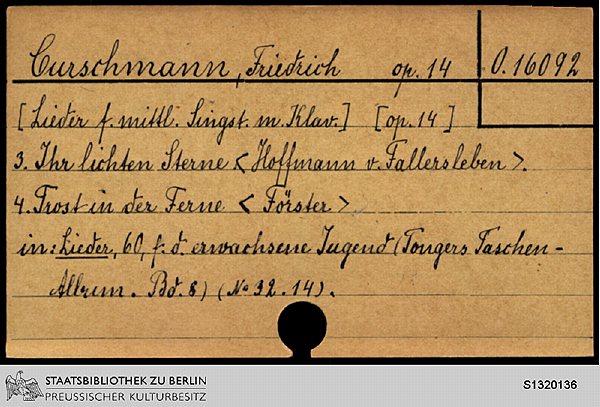 Curschmann, Friedrich op. 14 O. 16092
[Lieder f. mittl. Singst. m. Klav.] [op. 14]
3. Ihr lichten Sterne < Hoffmann v. Fallersleben >.
4. Trost in der Ferne < Förster >
in: Lieder, 60, f. d. erwachsene Jugend (Tongers Taschen-
Album. Bd. 8) (No 32. 14).
STAATSBIBLIOTHEK ZU BERLIN
PREUSSISCHER KULTURBESITZ
S1320136